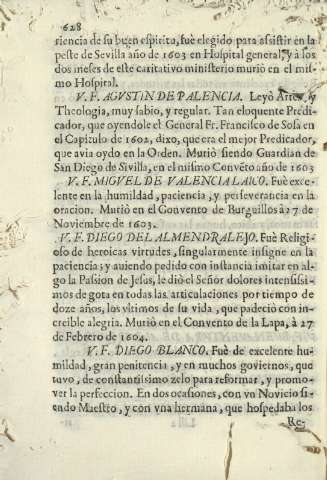 628
riencia de su buen espiritu, fuè elegido para assistir en la
peste de Sevilla año de 1603 en Hospital general, y a los
dos meses de este caritativo ministerio murio en el mis-
mo Hospital.
V. F. AGVSTIN DE PALENCIA. Leyò Artes, y
Theologia, muy sabio, y regular. Tan eloquente Predi-
cador, que oyendole el General Fr. Francisco de Sosa en
el Capitulo de 1602, dixo, que era el mejor Predicador,
que avia oydo en la Orden. Muriò siendo Guardian de
San Diego de Sivilla, en el mismo Conveto año de 1603
V. F. MIGVEL DE VALENCIA LAICO. Fuè exce-
lente en la humildad, paciencia, y perseverancia en la
oracion. Muriò en el Convento de Burguillos à 27 de
Noviembre de 1603.
V. F. DIEGO DEL ALMENDRALEJO. Fuè Religi-
oso de heroicas virtudes, singularmente insigne en la
paciencia; y auiendo pedido con instancia imitar en al-
go la Passion de Jesus, le diò el Señor dolores intensissi-
mos de gota en todas las articulaciones por tiempo de
doze años, los vltimos de su vida, que padeciò con in-
creible alegria. Muriò en el Convento de la Lapa, à 27
de Febrero de 1604.
V. F. DIEGO BLANCO. Fuè de excelente hu-
mildad, gran penitencia, y en muchos goviernos, que
tuvo, de constantissimo zelo para reformar, y promo-
ver la perfeccion. En dos ocasiones, con vn Novicio si-
endo Maestro, y con vna hermana, que hospedaba los
Re-